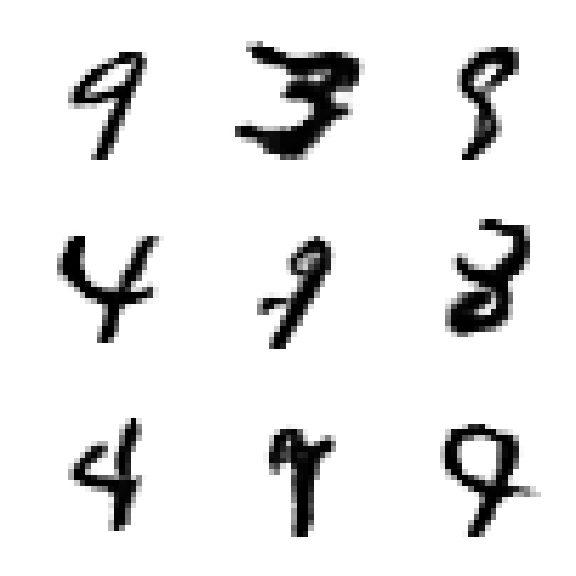 9 3 8
4 9 3
4 9 9